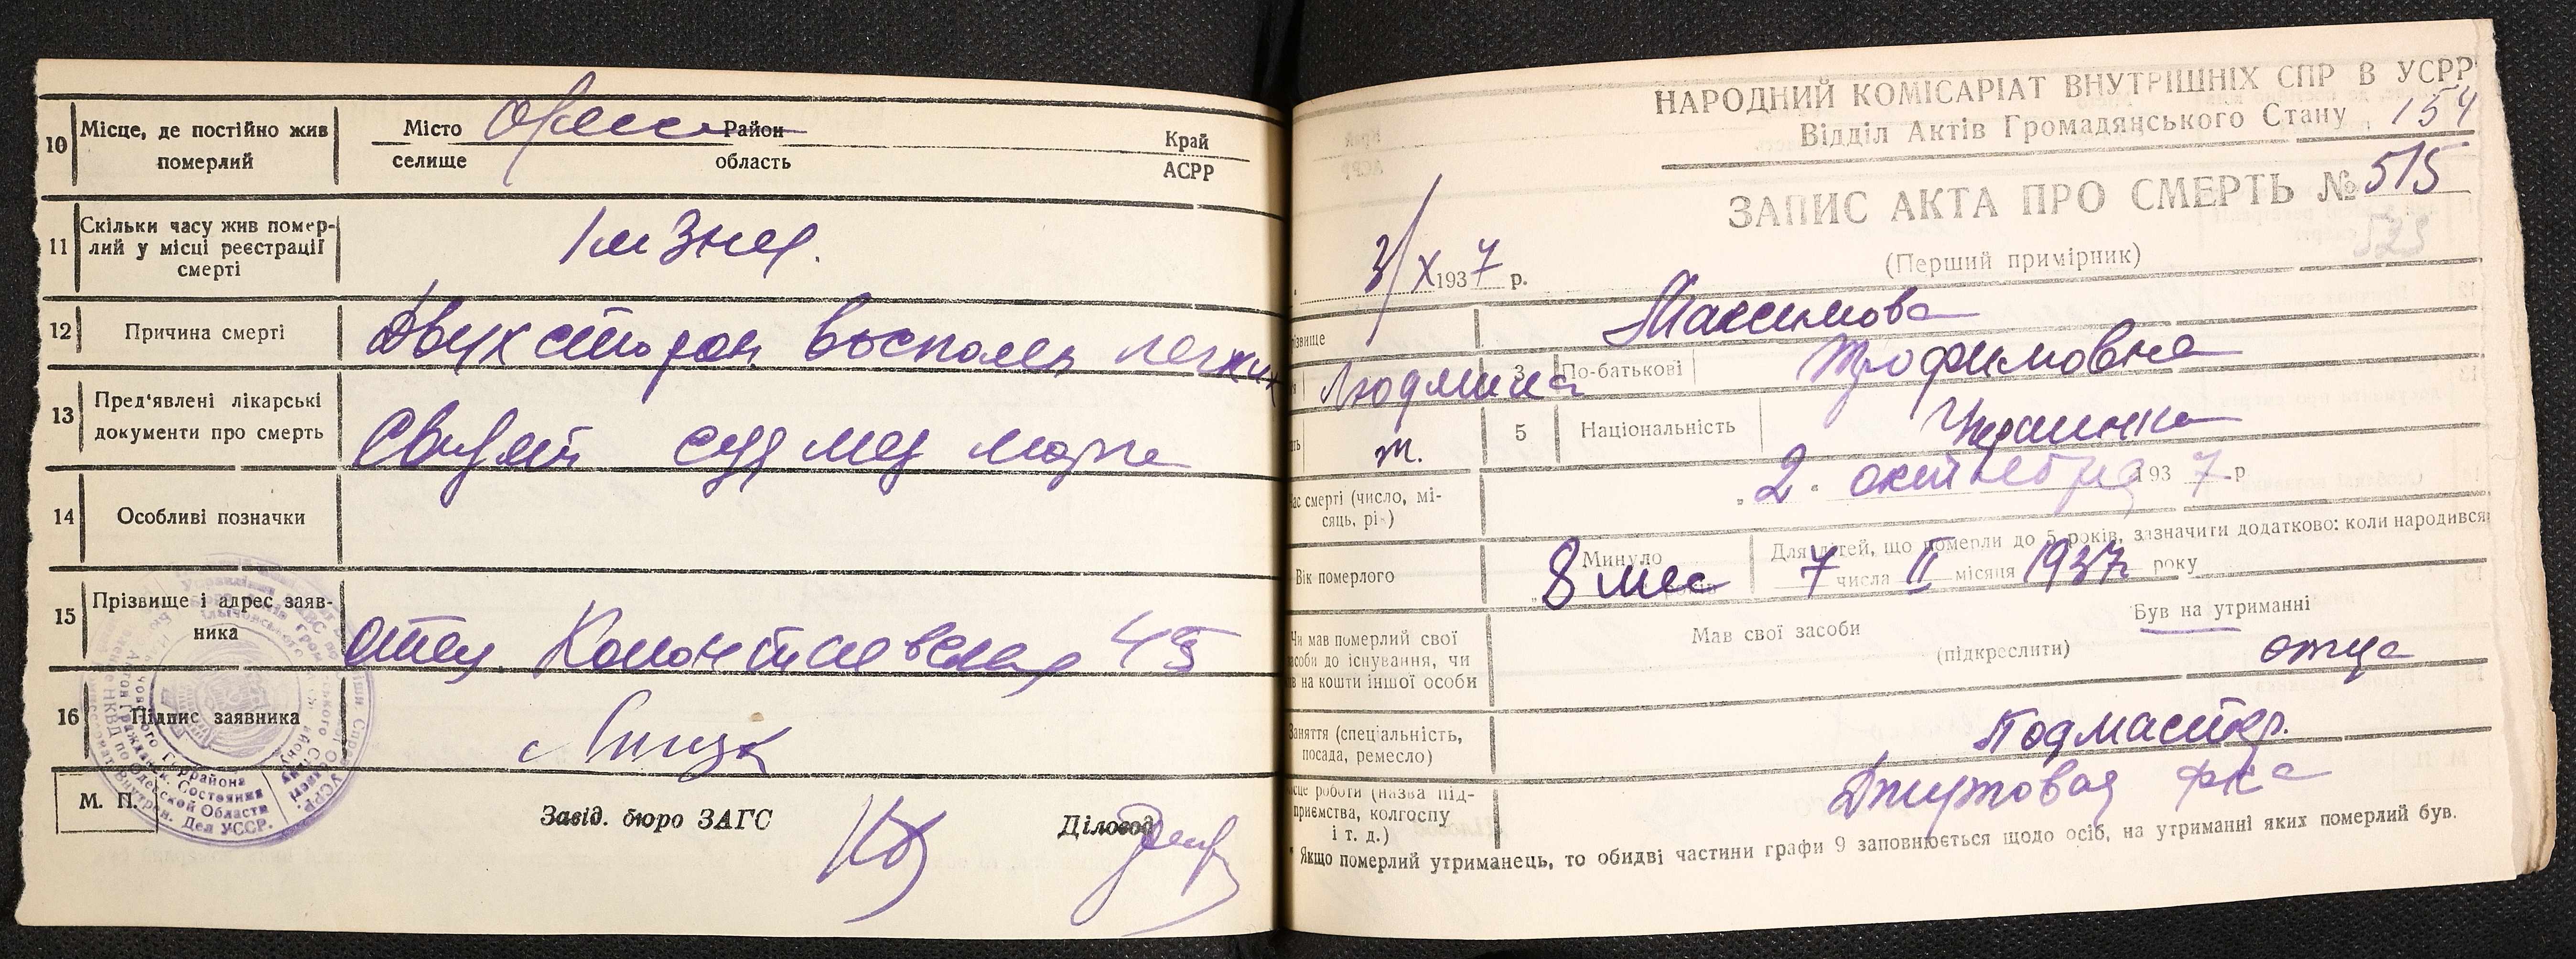 10 Місце, де постійно жив померлий
Місто Одесса Район Край
селище область АСРР
11 Скільки часу жив померлий у місці реєстрації смерті
12 Причина смерті
Двухсторон воспален легких
13 Пред'явлені лікарські документи про смерть
Свидет суд мед морга
14 Особливі позначки
15 Прізвище і адрес заявника
отец. 45
16 Підпис заявника
М. П.
Завід. бюро ЗАГС Діловод
НАРОДНИЙ КОМІСАРІАТ ВНУТРІШНІХ СПР В УСРР
Відділ Актів Громадянського Стану 154
ЗАПИС АКТА ПРО СМЕРТЬ № 515
523
(Перший примірник)
3/X 1937 р.
Максимова
ізвище
Людмила 3 По-батькові Трофимовна
ж. 5 Національність Украинка
ас смерті (число, місяць, рік) „2" октября 1937 р
Вік померлого Минуло 8 мес років
Для дітей, що померли до 5 років, зазначити додатково: коли народився
7 числа II місяця 1937 року
Чи мав померлий свої засоби до існування, чи в на кошти іншої особи
Мав свої засоби (підкреслити) Був на утриманні
отца
Заняття (спеціальність, посада, ремесло)
Подмастер.
сце роботи (назва підприємства, колгоспу і т. д.)
Джутовая ф-ка
* Якщо померлий утриманець, то обидві частини графи 9 заповнюється щодо осіб, на утриманні яких померлий був.